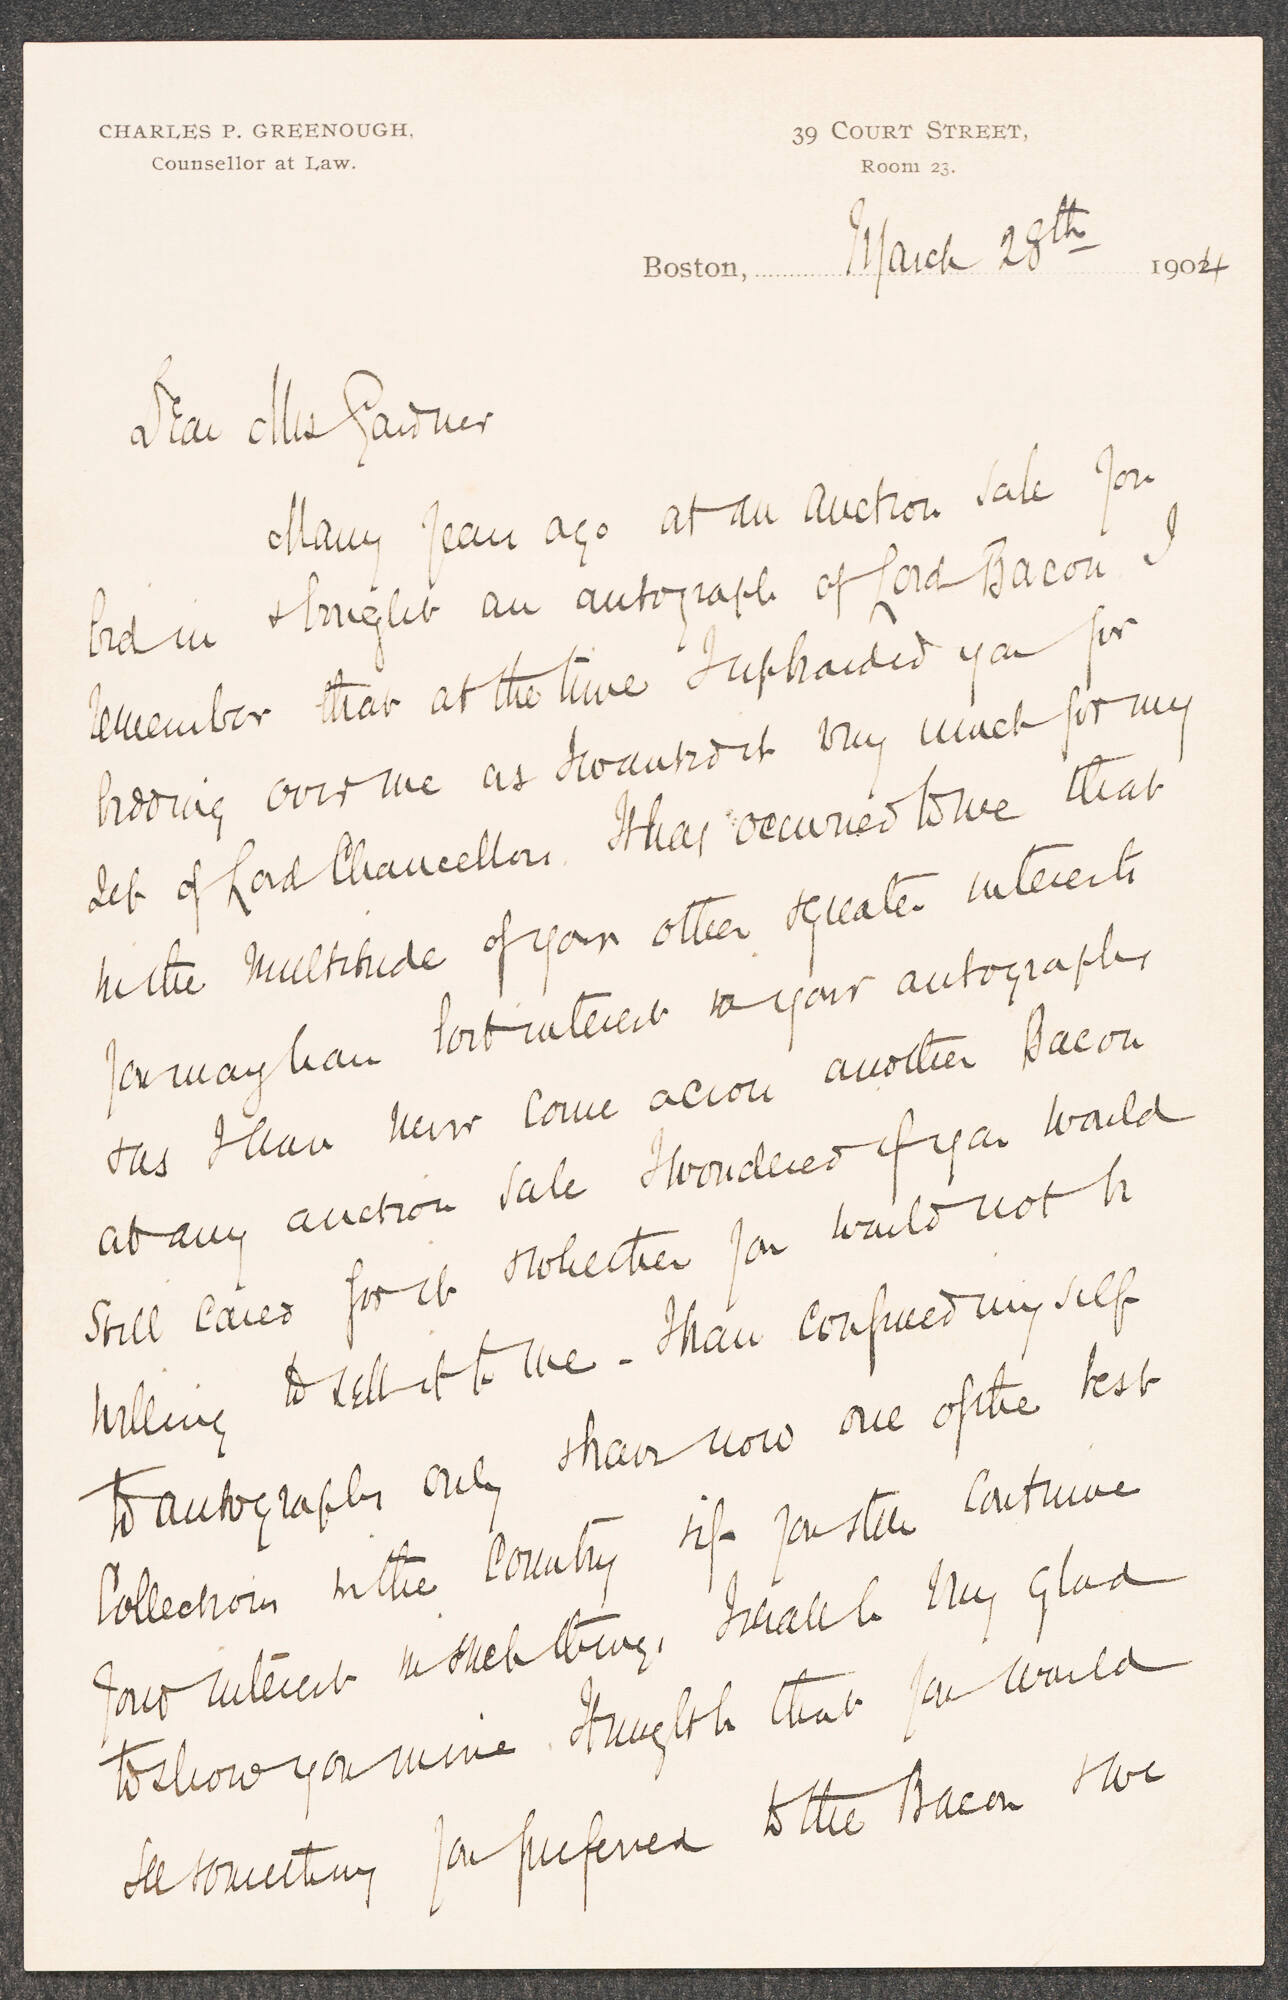 CHARLES P. GREENOUGH,
Counsellor at Law.
39 COURT STREET,
Room 23.
Boston, March 28th 1904
Dear Mrs Gardner
Many years ago at an auction sale you
bid in & bought an autograph of Lord Bacon. I
remember that at the time I upbraided you for
bidding over me as I wanted it very much for my
set of Lord Chancellors. It has occurred to me that
in the multitude of your other & greater interests
you may have lost interest in your autographs
& as I have never come across another Bacon
at any auction sale I wondered if you would
still cared for it & whether you would not be
willing to sell it to me - I have confined myself
to autographs only & have now one of the best
Collections in the Country & if you still continue
your interest in such things, I shall be very glad
to show you mine. It might be that you would
see something you preferred to the Bacon & we